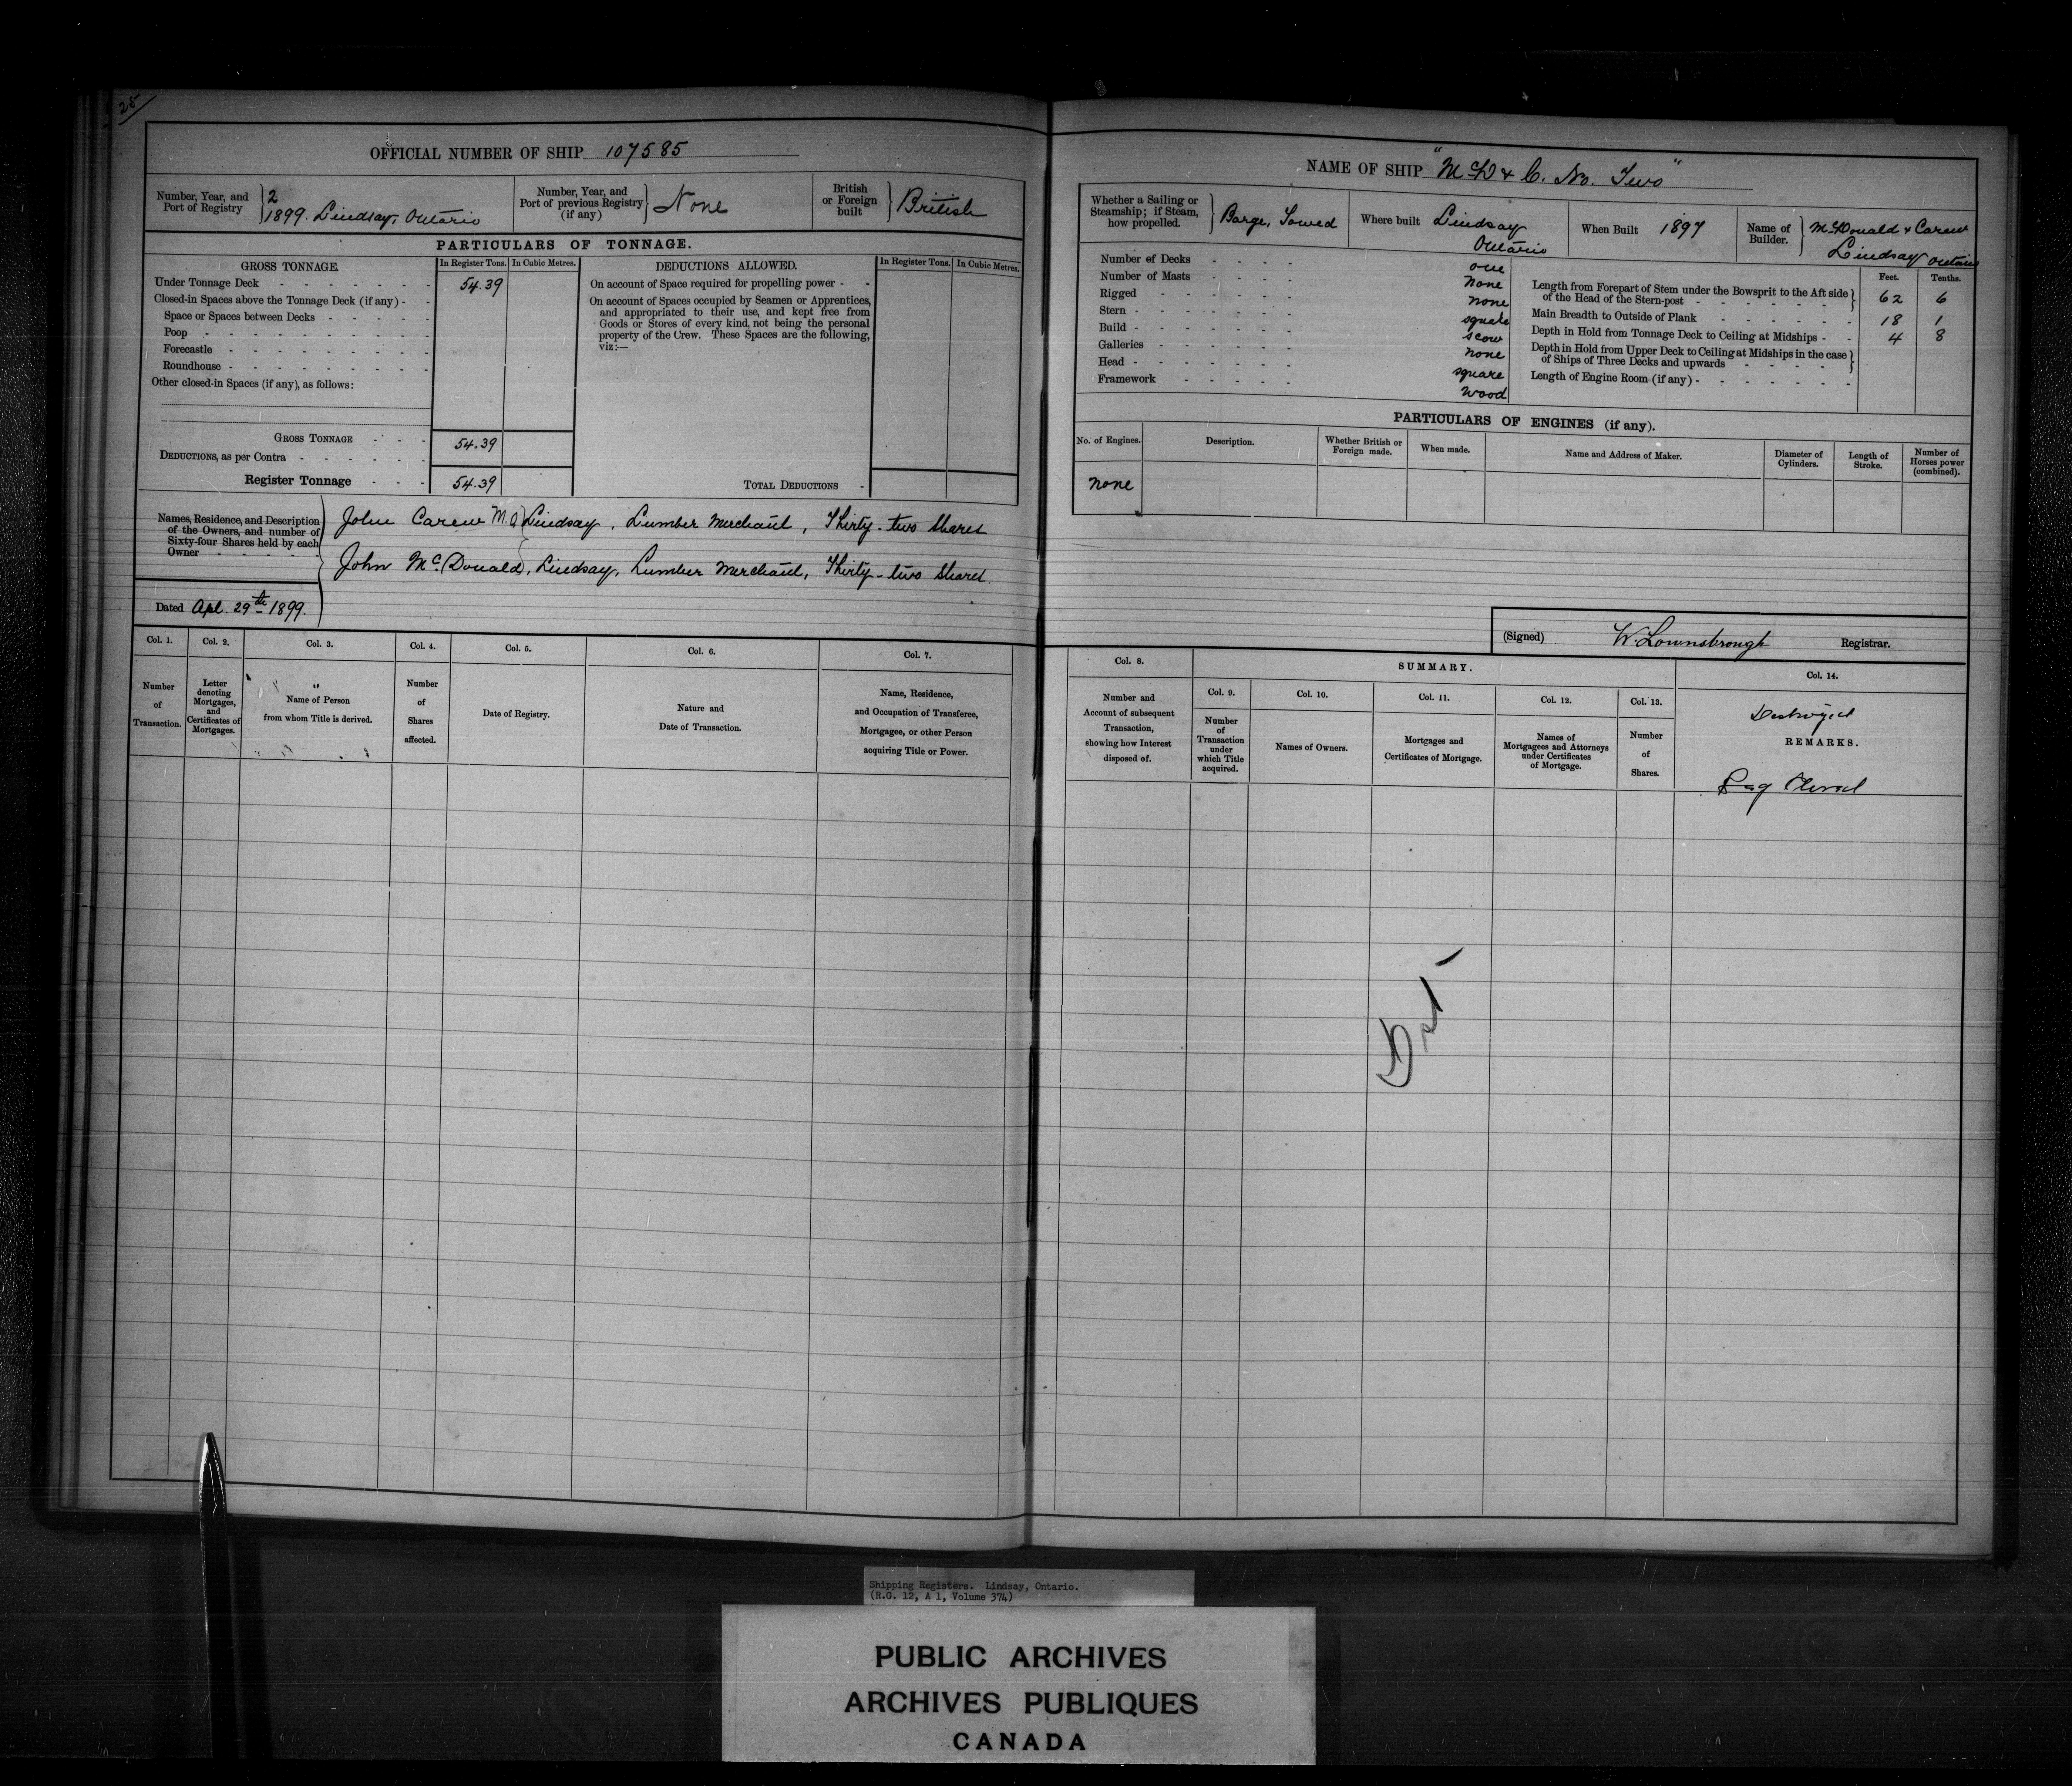 25
OFFICIAL NUMBER OF SHIP 107585
Number, Year, and Port of Registry
2
1899. Lindsay, Ontario
Number, Year, and Port of previous Registry (if any)
None
British or Foreign built
British
PARTICULARS OF TONNAGE.
GROSS TONNAGE.
In Register Tons.
In Cubic Metres.
DEDUCTIONS ALLOWED.
In Register Tons.
In Cubic Metres.
Under Tonnage Deck - 54.39
Closed-in Spaces above the Tonnage Deck (if any) -
Space or Spaces between Decks -
Poop -
Forecastle -
Roundhouse -
Other closed-in Spaces (if any), as follows:
GROSS TONNAGE - 54.39
DEDUCTIONS, as per Contra -
Register Tonnage - 54.39
On account of Space required for propelling power -
On account of Spaces occupied by Seamen or Apprentices,
and appropriated to their use, and kept free from
Goods or Stores of every kind, not being the personal
property of the Crew. These Spaces are the following,
viz:—
TOTAL DEDUCTIONS -
Names, Residence, and Description
of the Owners, and number of
Sixty-four Shares held by each
Owner -
John Carew M.O Lindsay, Lumber Merchant, Thirty-two Shares
John McDonald, Lindsay, Lumber Merchant, Thirty-two Shares
Dated Apl. 29th 1899.
Col. 1.
Number of Transaction.
Col. 2.
Letter denoting Mortgages, and Certificates of Mortgages.
Col. 3.
Name of Person
from whom Title is derived.
Col. 4.
Number of Shares affected.
Col. 5.
Date of Registry.
Col. 6.
Nature and
Date of Transaction.
Col. 7.
Name, Residence,
and Occupation of Transferee,
Mortgagee, or other Person
acquiring Title or Power.
NAME OF SHIP "McD & C. No. Two"
Whether a Sailing or Steamship; if Steam, how propelled.
Barge, Towed
Where built
Lindsay
Ontario
When Built 1897
Name of Builder.
McDonald & Carew
Lindsay Ontario
Number of Decks - one
Number of Masts - none
Rigged - none
Stern - square
Build - scow
Galleries - none
Head - square
Framework - wood
Feet. Tenths.
Length from Forepart of Stem under the Bowsprit to the Aft side
of the Head of the Stern-post - 62 6
Main Breadth to Outside of Plank - 18 1
Depth in Hold from Tonnage Deck to Ceiling at Midships - 4 8
Depth in Hold from Upper Deck to Ceiling at Midships in the case
of Ships of Three Decks and upwards -
Length of Engine Room (if any) -
PARTICULARS OF ENGINES (if any).
No. of Engines.
Description.
Whether British or Foreign made.
When made.
Name and Address of Maker.
Diameter of Cylinders.
Length of Stroke.
Number of Horses power (combined).
none
(Signed) W. Lownsbrough Registrar.
Col. 8.
Number and
Account of subsequent
Transaction,
showing how Interest
disposed of.
SUMMARY.
Col. 9.
Number of Transaction under which Title acquired.
Col. 10.
Names of Owners.
Col. 11.
Mortgages and
Certificates of Mortgage.
Col. 12.
Names of
Mortgagees and Attorneys
under Certificates
of Mortgage.
Col. 13.
Number of Shares.
Col. 14.
Destroyed
REMARKS.
Reg Closed
Shipping Registers. Lindsay, Ontario.
(R.G. 12, A 1, Volume 374)
PUBLIC ARCHIVES
ARCHIVES PUBLIQUES
CANADA